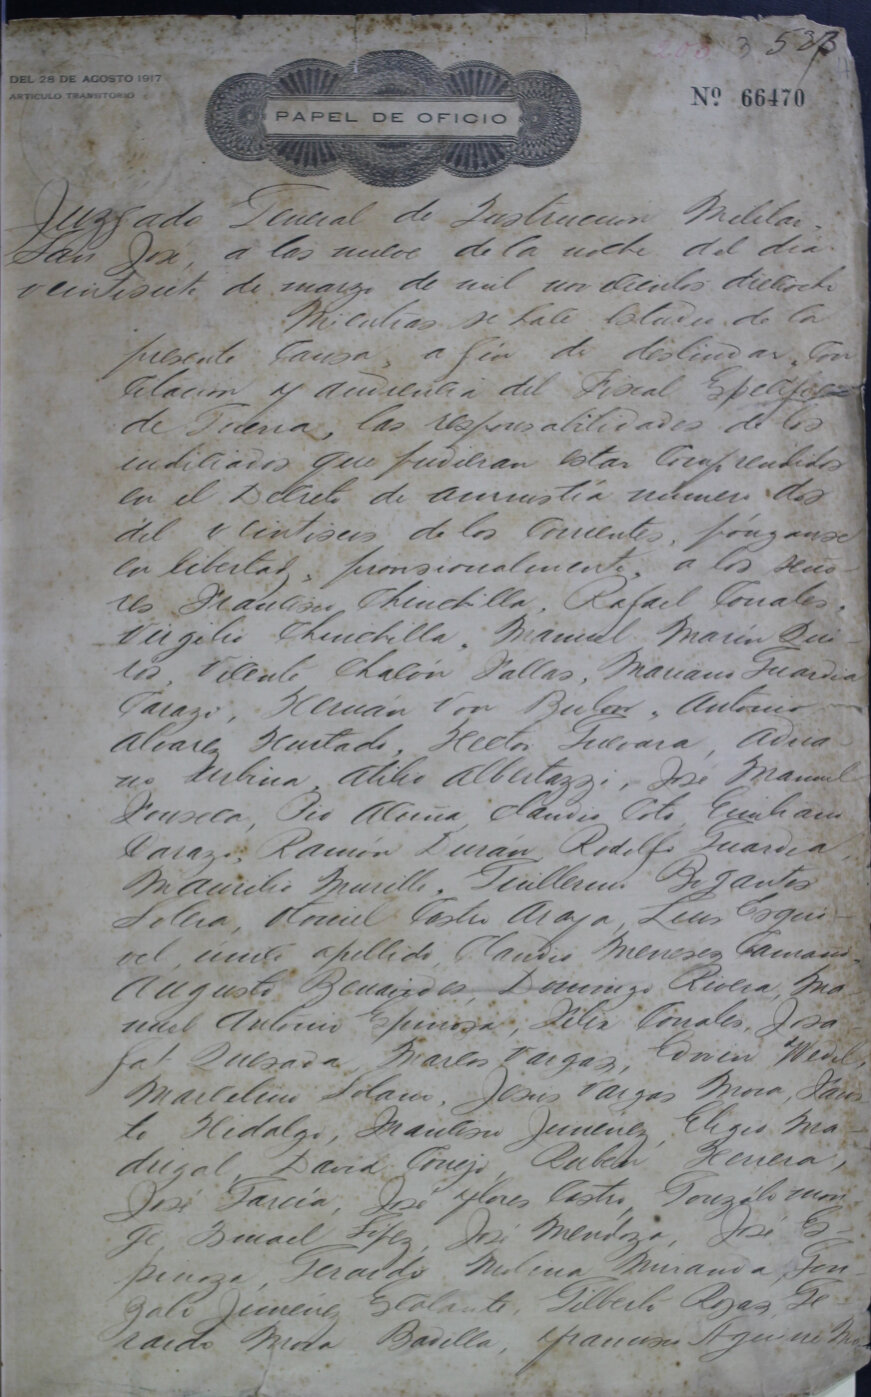 208 3 533
DEL 28 DE AGOSTO 1917
ARTICULO TRANSITORIO
PAPEL DE OFICIO
Nº 66470
Juzgado General de Instrucción Militar,
San José, a las nueve de la noche del día
veintisiete de marzo de mil novecientos dieciocho
Mientras se hace estudio de la
presente causa, a fin de deslindar, con
citación y audiencia del Fiscal Específico
de Guerra, las responsabilidades de los
indiciados que pudieran estar comprendidos
en el Decreto de amnistía número dos
del veintiseis de los corrientes, pónganse
en libertad, provisionalmente, a los seño-
res Francisco Chinchilla, Rafael Corrales,
Virgilio Chinchilla, Manuel Marín Qui-
rós, Vicente Chacón Fallas, Mariano Guardia
Carazo, Hernán Von Bulow, Antonio
Alvarez Hurtado, Hector Guevara, Adria-
no Urbina, Atilio Albertazzi, José Manuel
Fonseca, Pío Acuña, Claudio Coto, Emiliano
Carazo, Ramón Durán, Rodolfo Guardia,
Maurilio Murillo, Guillermo Bogantes
Solera, Otoniel Castro Araya, Luis Esqui-
vel, único apellido, Claudio Meneses Camaño,
Augusto Benavides, Domingo Rivera, Ma-
nuel Antonio Espinosa, Felix Corrales, Josa-
fat Quesada, Marcos Vargas, Edwin Wedel,
Marcelino Solano, Jesus Vargas Mora, Faus-
to Hidalgo, Francisco Jiménez, Eligio Ma-
drigal, David Conejo, Rubén Herrera,
José García, José Flores Castro, Gonzálo Mon-
ge, Ismael López, José Mendoza, José Es-
pinoza, Gerardo Molina Miranda, Gon-
zalo Jiménez Escalante, Gilberto Rojas, Ge-
rardo Mora Badilla, Francisco Aguirre Mo